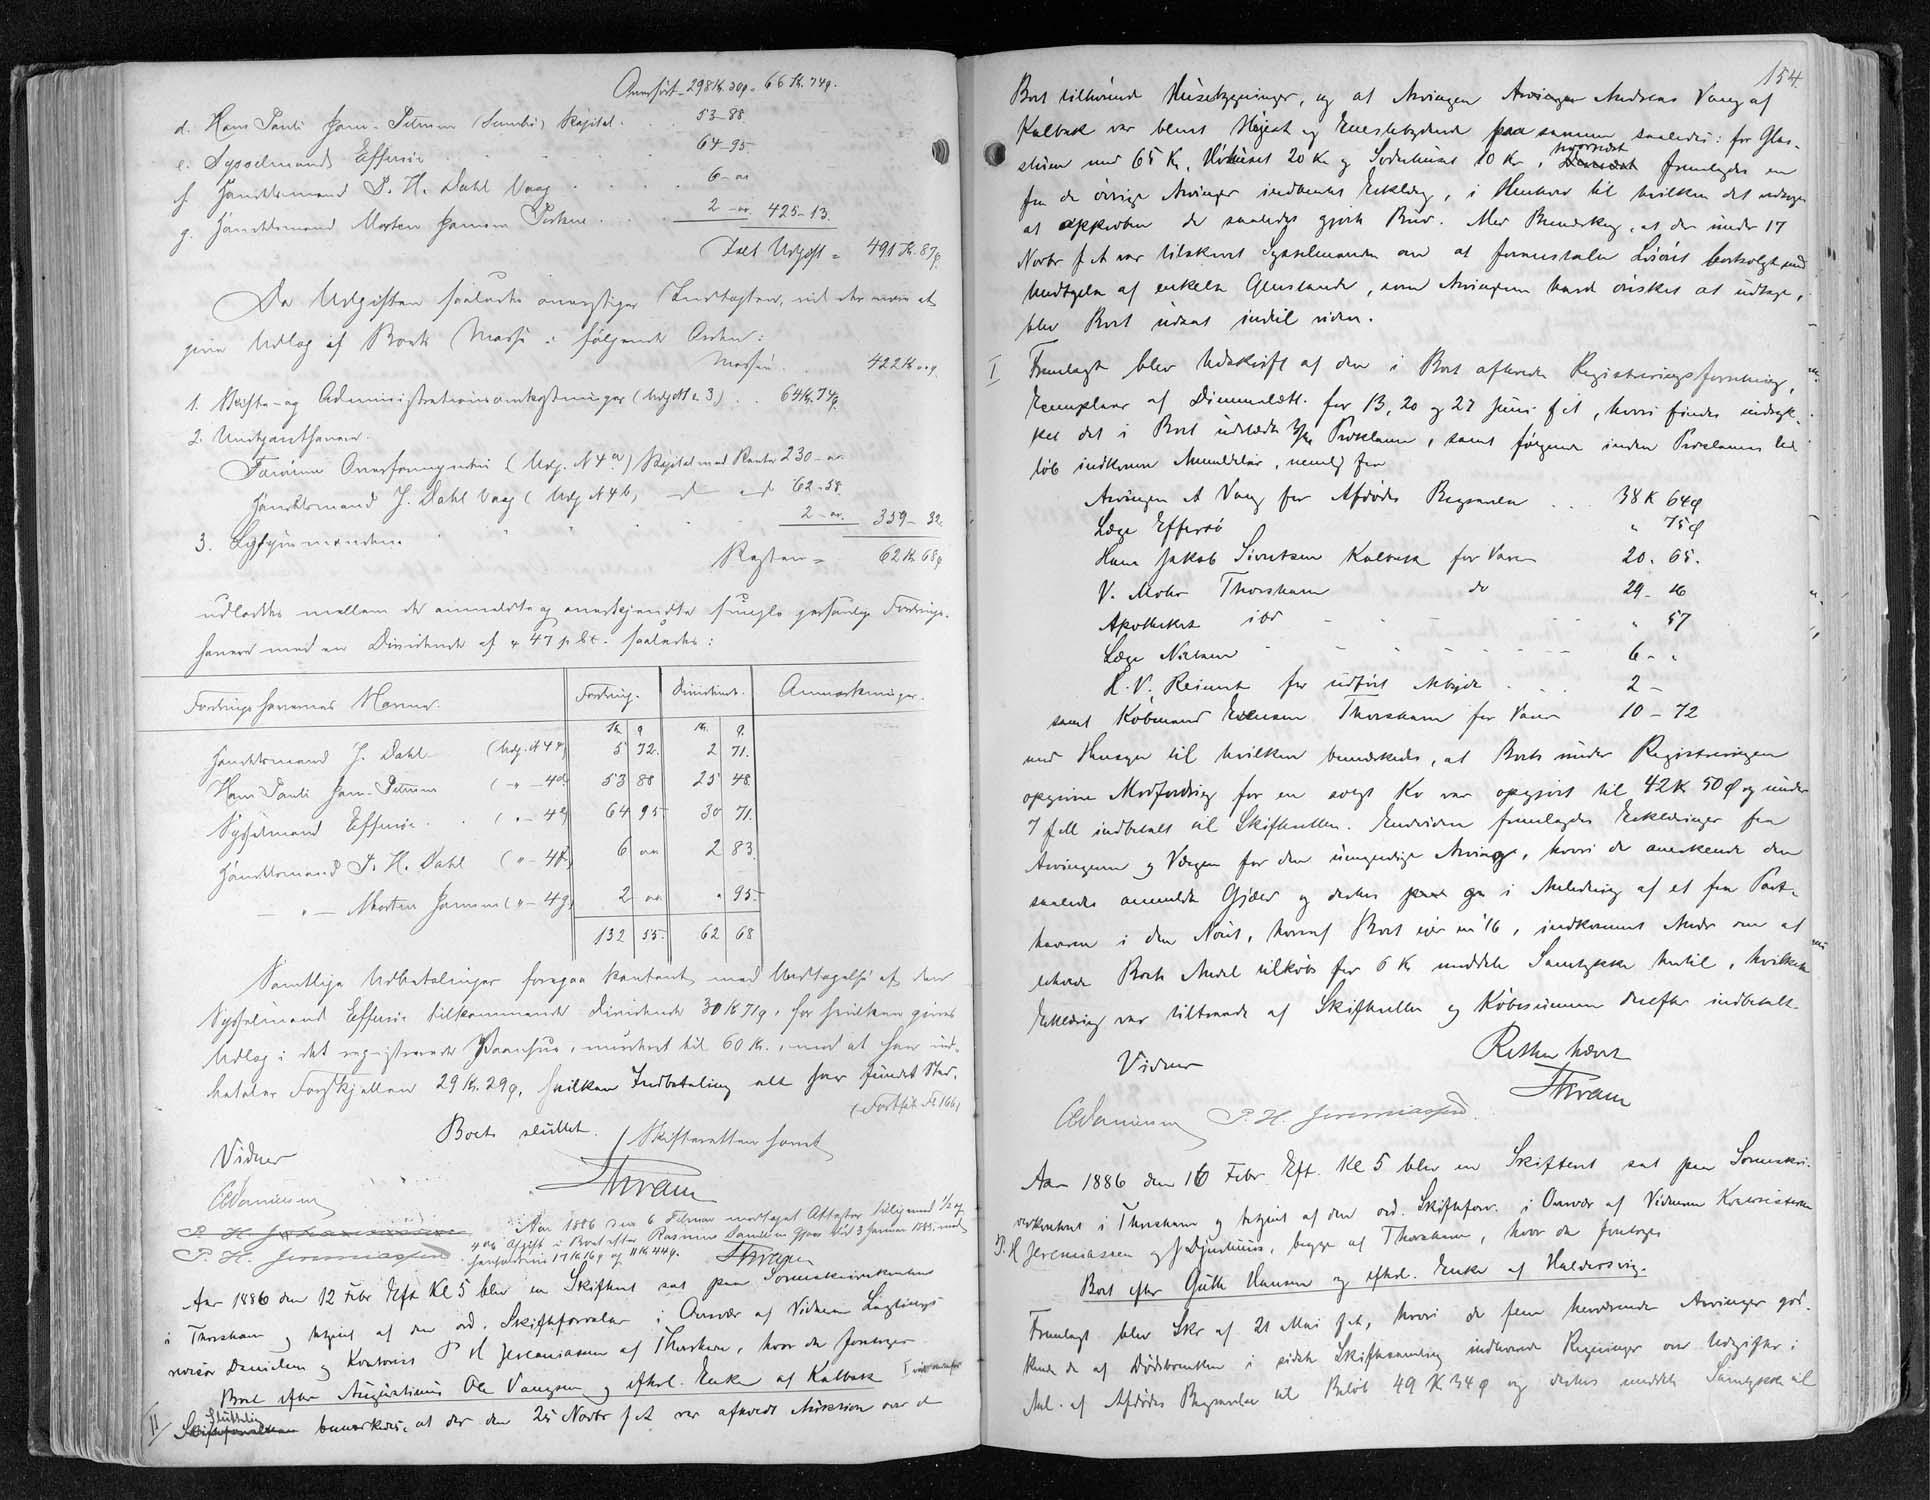 Overført 298 Kr. 30 ø. 66 Kr. 74 ø.
d. Hans Pauli Joen-Petersen (Sumbø) Kapital. 53-88
e. Sysselmand Effersøe . . . 64-95
f. Handelsmand P. H. Dahl Vaag . . . 6-"
g. Handelsmand Morten Hansen . . . 2-" 425-13.
Ialt Udgift = 491 Kr. 87 ø.
Da Udgiften saaledes overstiger Indtægten, vil der være at
give Udlag af Boets Masse i følgende Orden:
Massen . . 422 Kr " ø
1. Skifte- og Administrationsomkostninger (Udgift 1-3) . . 64 Kr. 74 ø.
2. Underpanthavere.
Færøernes Overformynderi (Udg. N 4 a) Kapital med Renter 230-"
Handelsmand J. Dahl Vaag (Udg N 4 b) 62-58
3. " " 2-" 359-32
Resten = 62 Kr 68 ø
udloddes mellem de anmeldte og anerkjendte simple personlige Fordrings-
havere med en Dividende af 47 p Ct. saaledes:
Fordringshavernes Navne. Fordring. Dividende. Anmærkninger.
Kr. ø Kr. ø.
Handelsmand J. Dahl (Udg. N 4 c) 5 72. 2 71.
Hans Pauli Joen-Petersen ( " - 4 d) 53 88 25 48.
Sysselmand Effersøe. ( " - 4 e) 64 95 30 71.
Handelsmand P. H. Dahl ( " - 4 f) 6 " 2 83
- " - Morten Hansen ( " - 4 g) 2 " " 95
132 55. 62 68
Samtlige Udbetalinger foregaa kontant, med Undtagelse af den
Sysselmand Effersøe tilkommende Dividende 30 Kr 71 ø, for hvilken gives
Udlag i det registrerede, vurderet til 60 Kr., imod at han ind-
betaler Forskjellen 29 Kr. 29 ø, hvilken Indbetaling alt har fundet Sted.
(Fortsat Fol 166)
Boets sluttet. Skifteretten hævet
Vidner
CDanielsen
P. H. Jeremiassen
Aar 1886 den 6 Februar modtaget Attester
4 % Afgift i Boet efter Rasmus død 3 Januar 1885
henholdsvis 17 Kr 16 ø og 11 Kr 44 ø.
Aar 1886 den 12 Febr Eft. Kl 5 blev en Skifteret sat paa Sorenskriverkontoret
i Thorshavn og betjent af den ord. Skifteforvalter i Overvær af Vidnerne Lagtings-
revisor Danielsen og Kontorist P H Jeremiassen af Thorshavn, hvor da foretoges
Boet efter Augustinus Ole Vangsen og efterl. Enke af Kalbak
II Sluttelig bemærkedes, at der den 25 Novbr f A var afholdt Auktion over de
154.
Boet tilhørende Husebygninger, og at Arvingen Andreas Vang af
Kalbak var blevet Højest- og Eneste bydende paa samme saaledes: for Glas-
stuen med 65 Kr, Høhuset 20 Kr og Sydehuset 10 Kr, hvornæst fremlagdes en
fra de øvrige Arvinger indhentet Erklæring, i Henhold til hvilken det vedtoges
at approbere de saaledes gjorte Bud. Med Bemærkning, at der under 17
Novbr f A var tilskrevet Sysselmanden om at foranstalte Løsøret bortsolgt med
Undtagelse af enkelte Genstande, som Arvingerne havde ønsket at udtage,
blev Boet udsat indtil videre.
I Fremlagt blev Udskrift af den i Boet afholdte Registreringsforretning,
Exemplarer af Dimmalætt. for 13, 20 og 27 Juni f A, hvori findes indryk-
ket det i Boet udstedte Proklama, samt følgende inden Proklamas Ud-
løb indkomne Anmeldelser, nemlig fra
Arvingen A Vang for Afdødes Begravelse . . 38 K 64 ø
Læge Effersø " 75 ø
Hans Jakob Sivertsen Kalbak for Varer 20. 65.
V. Mohr Thorshavn do 29-16
Apotheket ibd " 57
Læge Nielsen 6-"
H. V. Reinert for udført Arbejde . . . 2-
samt Købmand Thorshavn for Varer 10-72
med Hensyn til hvilken bemærkedes, at Boets under Registreringen
opgivne Modfordring for en solgt Ko var opgjort til 42 K 50 Ø og under
7 f M indbetalt til Skifteretten. Endvidere fremlagdes Erklæringer fra
Arvingerne og Værgen for den umyndige Arving, hvori de anerkende den
saaledes anmeldte Gjæld og derhos i Anledning af et fra Part-
haverne i den Nøst, hvoraf Boet ejer en 1/6, indkommet Andr om at
erholde Boets Andel tilkøbs for 6 Kr meddele Samtykke hertil, hvilken
Erklæring var tiltraadt af Skifteretten og Købesummen derefter indbetalt.
Retten hævet
Vidner
CDanielsen P. H. Jeremiassen.
Aar 1886 den 16 Febr Eft. Kl 5 blev en Skifteret sat paa Sorenskri-
verkontoret i Thorshavn og betjent af den ord. Skifteforv. i Overvær af Vidnerne Kontoristerne
P. H Jeremiassen og J Djurhuus, begge af Thorshavn, hvor da foretoges
Boet efter Guttorm Hansen og efterl. Enke af Haldersvig.
Fremlagt blev Skr af 21 Mai f A, hvori de fem herværende Arvinger god-
kende de af Dødsboet i sidste Skiftesamling indleverede Regninger over Udgifter i
Anl. af Afdødes Begravelse til Beløb 49 K 34 ø og derhos meddele Samtykke til